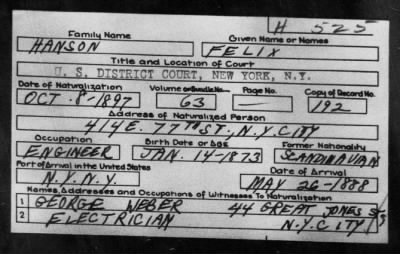 H 525
Family Name Given Name or Names
HANSON FELIX
Title and Location of Court
U. S. DISTRICT COURT, NEW YORK, N.Y.
Date of Naturalization Volume or Bundle No. Page No. Copy of Record No.
OCT. 8-1897 63 — 192
Address of Naturalized Person
414 E. 77TH ST., N.Y. CITY
Occupation Birth Date or Age Former Nationality
ENGINEER JAN. 14-1873 SCANDINAVIAN
Port of Arrival in the United States Date of Arrival
N.Y. N.Y. MAY 26-1888
Names, Addresses and Occupations of Witnesses To Naturalization
1 GEORGE WEBER 44 GREAT JONES ST
2 ELECTRICIAN N.Y. CITY